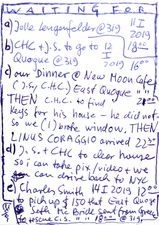 WAITING FOR
a) Jolle Lengenfelder @ 319 11 I 2019
b) CHC + J.S. to go to 12 I 18:00
Quogue @ 319 16:00
c) our Dinner @ New Moon Cafe
(J.S., C.H.C.) East Quogue
THEN C.H.C. to find
keys for his house - he did not
so we (1) broke window, THEN
2/NUS CORAGGIO arrived
d) J.S. + CHC to clear house
so i can take pix/video + we
can drive back to NYC
e) Charles Smith 14 I 2019
to pick up $150 that East Quogue
Seth the Bride sent from Greece
to rescue C.S. @ 319 18:00